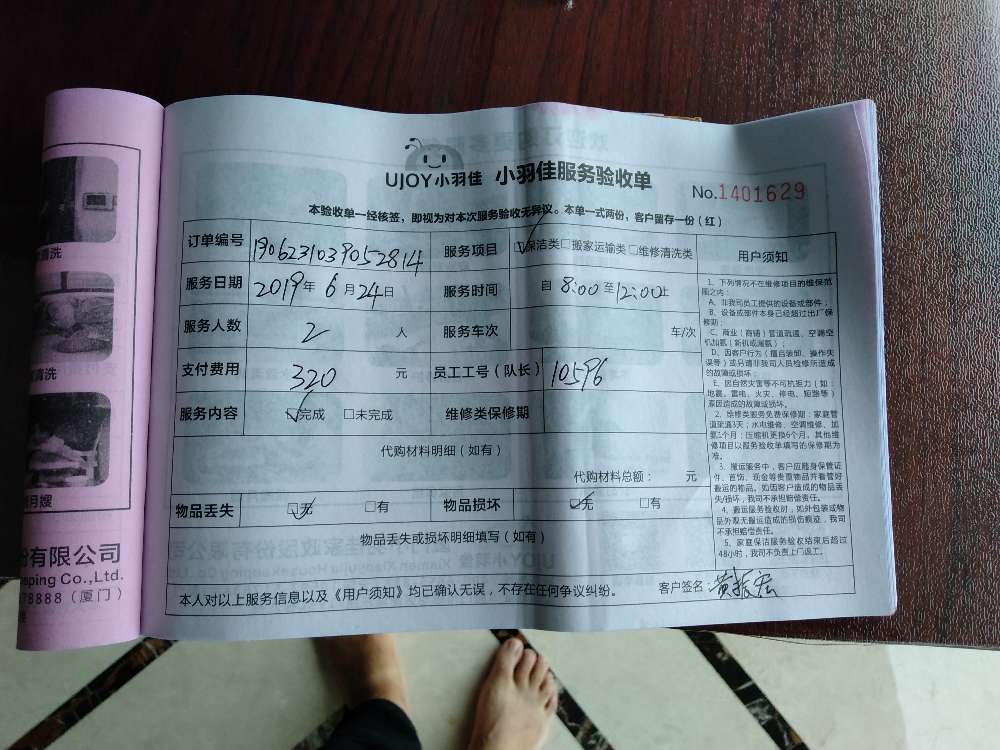 UJOY小羽佳 小羽佳服务验收单
No.1401629
本验收单一经核签，即视为对本次服务验收无异议。本单一式两份，客户留存一份（红）
订单编号 1906231039052814 服务项目 ☑保洁类□搬家运输类□维修清洗类
服务日期 2019年6月24日 服务时间 自8:00至12:00止
服务人数 2 人 服务车次 车/次
支付费用 320 元 员工工号（队长） 10596
服务内容 ☑完成 □未完成 维修类保修期
代购材料明细（如有）
代购材料总额： 元
物品丢失 ☑无 □有 物品损坏 ☑无 □有
物品丢失或损坏明细填写（如有）
本人对以上服务信息以及《用户须知》均已确认无误，不存在任何争议纠纷。 客户签名：黄振宏
用户须知
1、下列情况不在维修项目的维保范
围之内：
A、非我司员工提供的设备或部件；
B、设备或部件本身已经超过出厂保
修期；
C、商业（商铺）管道疏通、空调空
机加氨（新机或漏氨）；
D、因客户行为（擅自装卸、操作失
误等）或另请非我司人员检修所造成
的故障或损坏；
E、因自然灾害等不可抗拒力（如：
地震、雷电、火灾、停电、短路等）
原因造成的故障或损坏。
2、维修类服务免费保修期：家庭管
道渠道3天；水电维修、空调维修、加
氨1个月；压缩机更换6个月。其他维
修项目以服务验收单填写的保修期为
准。
3、搬运服务中，客户应随身保管证
件、首饰、现金等贵重物品并看管好
搬运的物品。如因客户造成的物品丢
失/损坏，我司不承担赔偿责任。
4、搬运服务验收时，如外包装或物
品外观无搬运造成的损伤痕迹，我司
不承担赔偿责任。
5、家庭保洁服务验收结束后超过
48小时，我司不负责上门返工。
清洗
清洗
月嫂
份有限公司
ping Co.,Ltd.
8888（厦门）